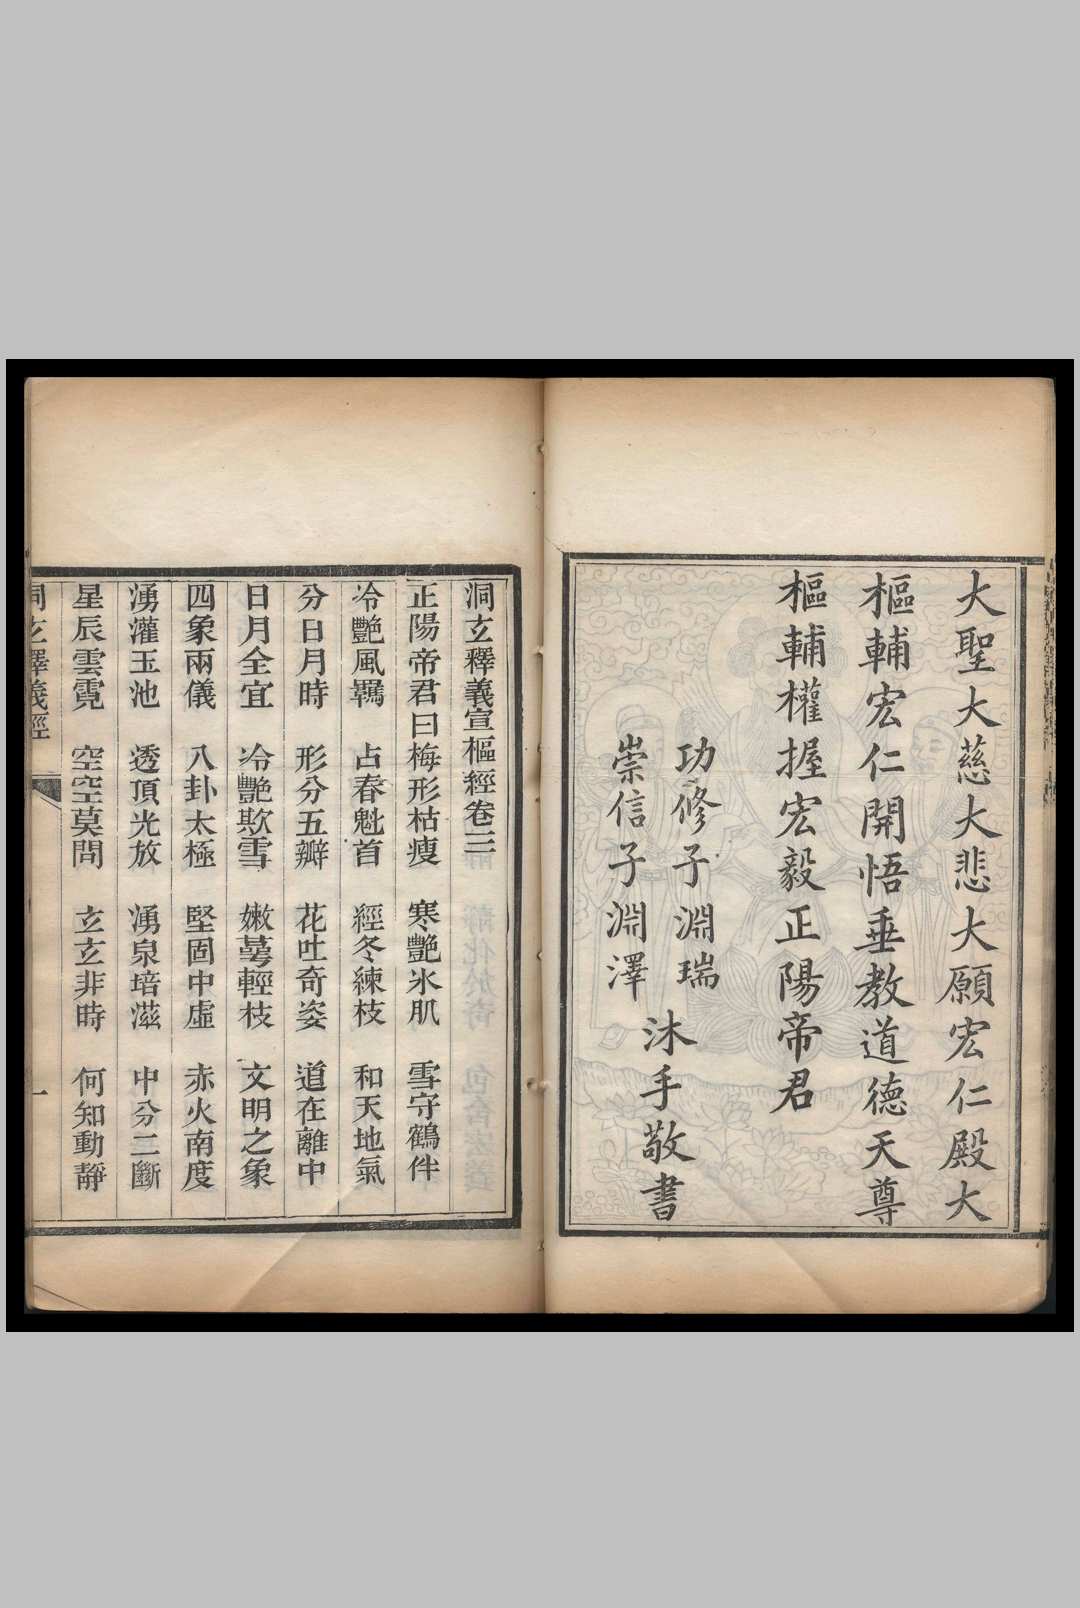 大聖大慈大悲大願宏仁殿大
樞輔宏仁開悟垂教道德天尊
樞輔權握宏毅正陽帝君
功修子淵瑞
崇信子淵澤
沐手敬書
洞玄釋義宣樞經卷三
正陽帝君曰梅形枯瘦 寒艷氷肌 雪守鶴伴
冷艷風羈 占春魁首 經冬練枝 和天地氣
分日月時 形分五瓣 花吐奇姿 道在離中
日月全宜 冷艷欺雪 嫩萼輕枝 文明之象
四象兩儀 八卦太極 堅固中虛 赤火南度
湧灌玉池 透頂光放 湧泉培滋 中分二斷
星辰雲霓 空空莫問 玄玄非時 何知動靜
洞玄釋義經 一